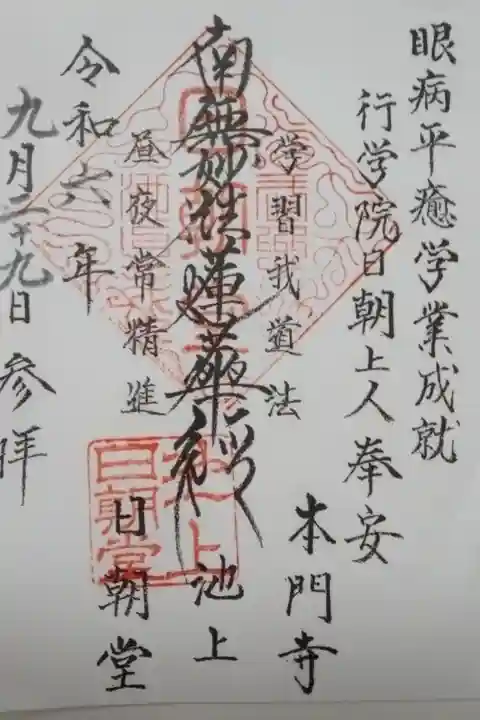 眼病平癒学業成就
行学院日朝上人奉安
本門寺
学習我道法
南無妙法蓮華経
池上
昼夜常精進
日朝堂
令和六年
九月二十九日 参拝
池上
日朝堂